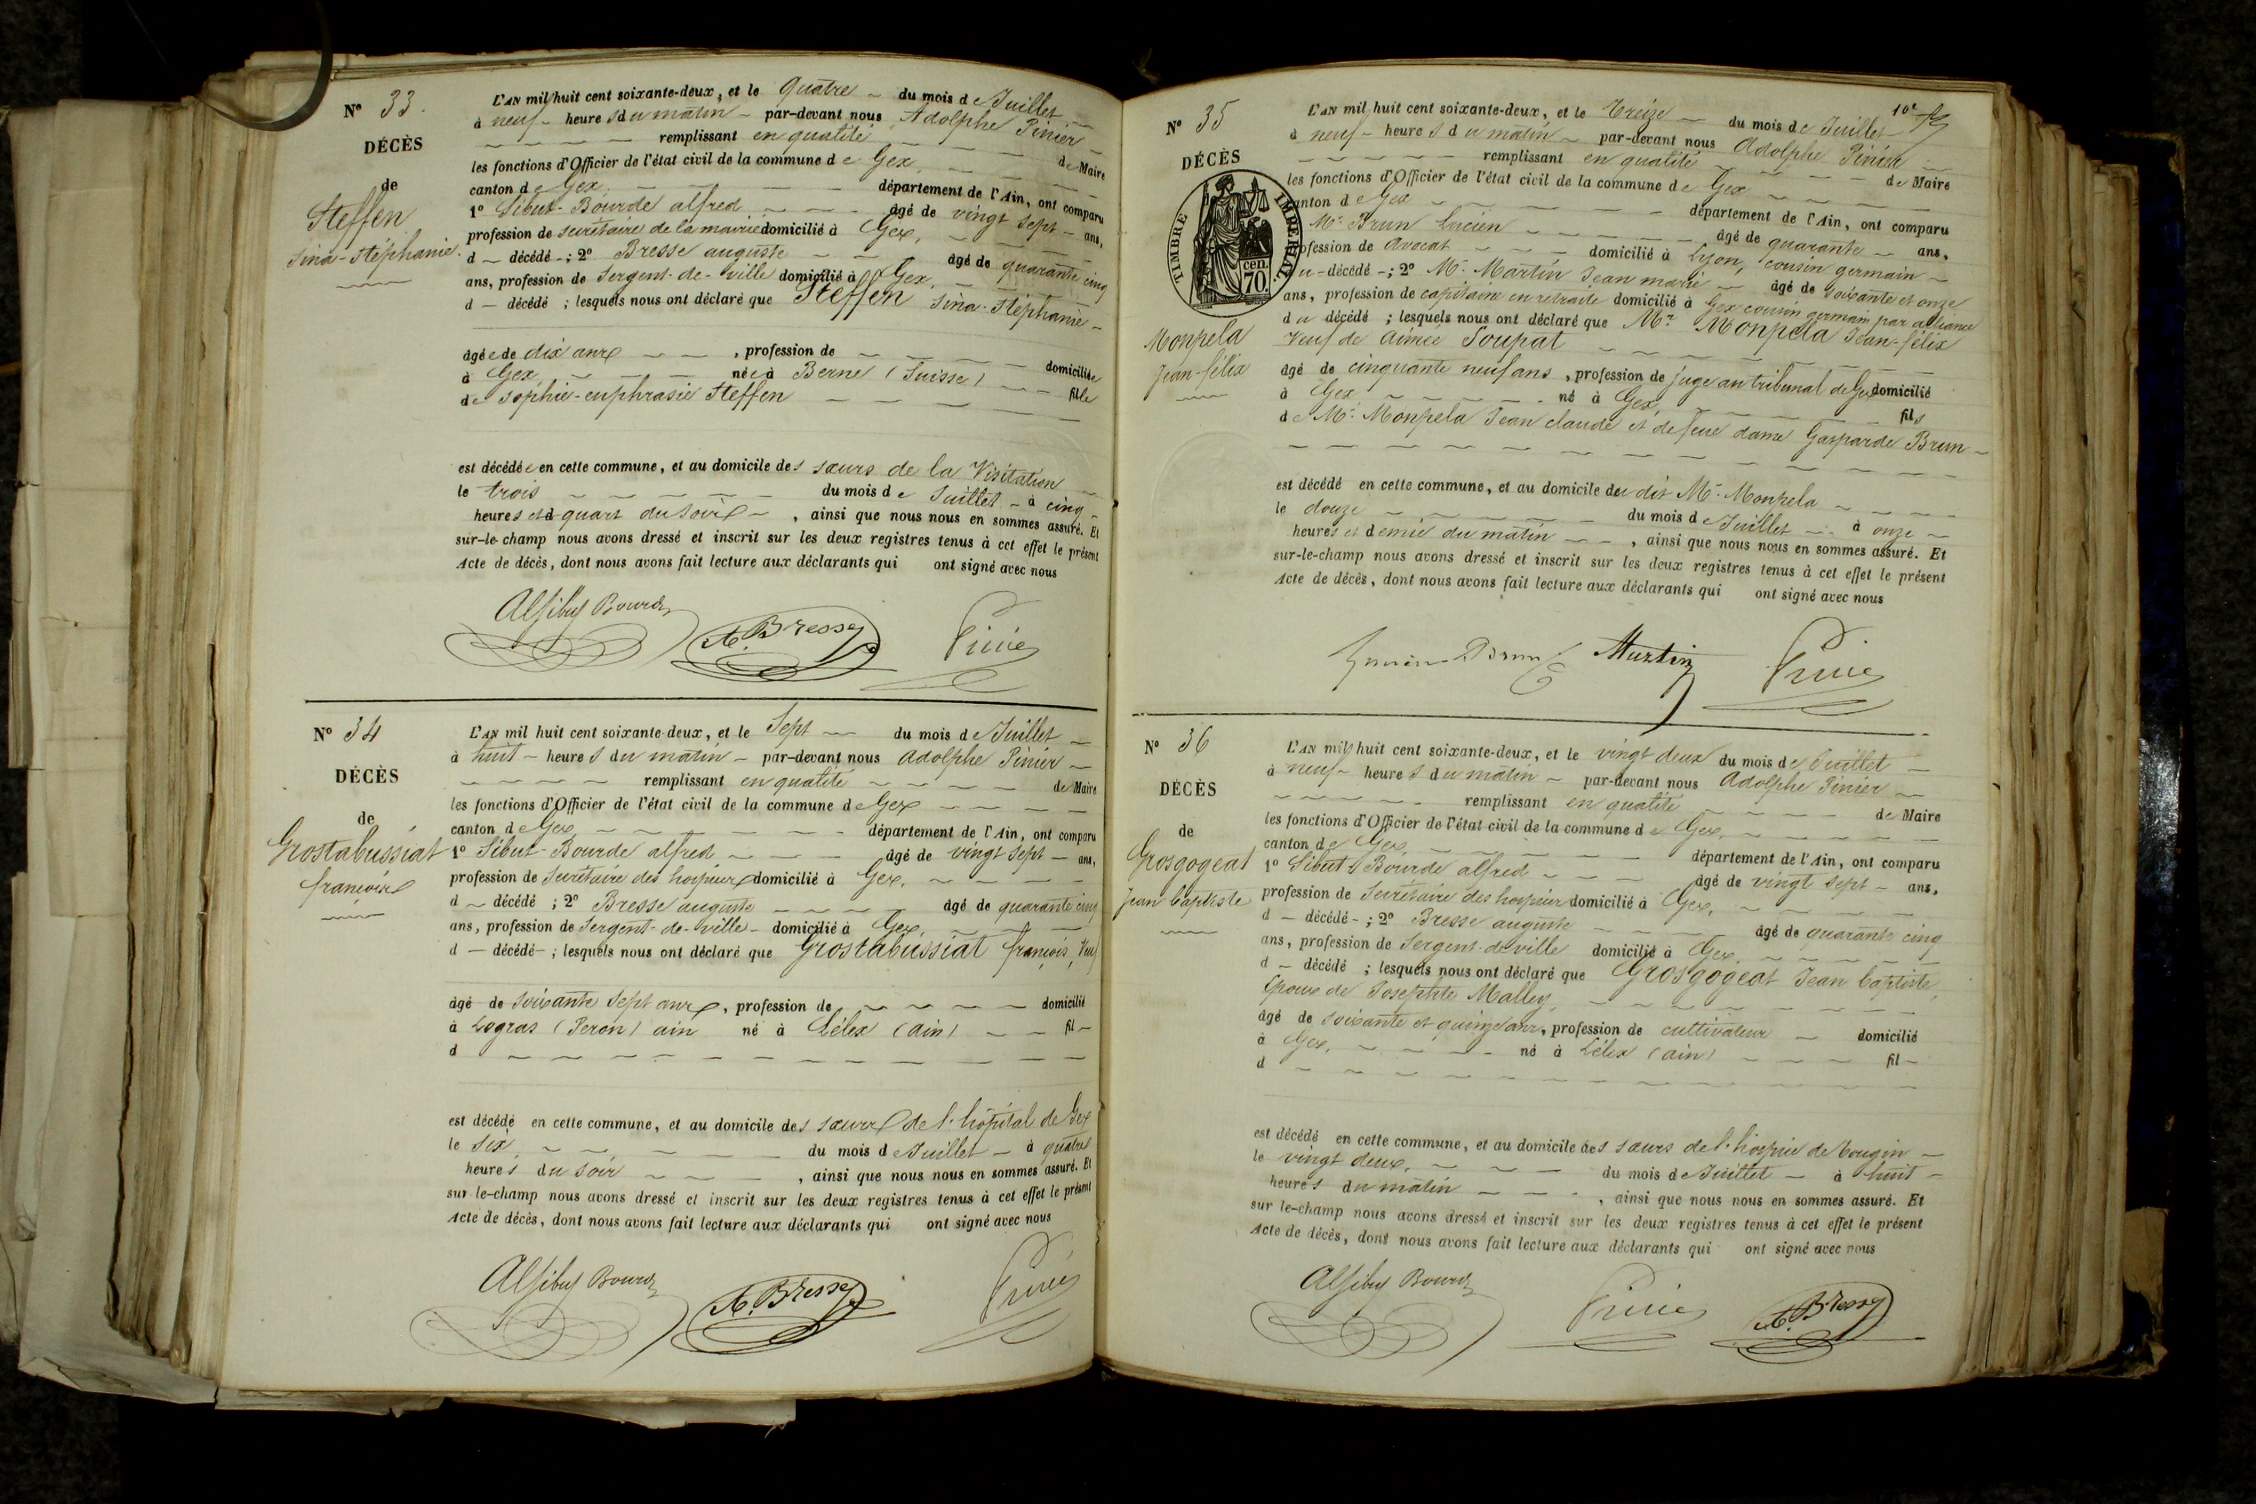 N° 33.
DÉCÈS
de
Steffen
Sina-Stéphanie.
L'AN mil huit cent soixante-deux, et le Quatre du mois de Juillet
à neuf heures du matin par-devant nous Adolphe Pinier
remplissant en qualité de Maire
les fonctions d'Officier de l'état civil de la commune de Gex
canton de Gex département de l'Ain, ont comparu
1° Sibut-Bourde alfred âgé de vingt sept ans,
profession de secrétaire de la mairie domicilié à Gex,
d décédé ; 2° Bresse auguste âgé de quarante cinq
ans, profession de Sergent-de-ville domicilié à Gex,
d décédé ; lesquels nous ont déclaré que Steffen Sina-Stéphanie
âgée de dix ans , profession de domiciliée
à Gex née à Berne (Suisse) fille
de Sophie-euphrasie Steffen
est décédée en cette commune, et au domicile des sœurs de la Visitation
le trois du mois de Juillet à cinq
heures et quart du soir , ainsi que nous nous en sommes assuré. Et
sur-le-champ nous avons dressé et inscrit sur les deux registres tenus à cet effet le présent
Acte de décès, dont nous avons fait lecture aux déclarants qui ont signé avec nous
A. Bresse
Pinier
N° 34
DÉCÈS
de
Grostabussiat
françois
L'AN mil huit cent soixante-deux, et le Sept du mois de Juillet
à huit heures du matin par-devant nous Adolphe Pinier
remplissant en qualité de Maire
les fonctions d'Officier de l'état civil de la commune de Gex
canton de Gex département de l'Ain, ont comparu
1° Sibut-Bourde alfred âgé de vingt sept ans,
profession de Secrétaire des hospices domicilié à Gex,
d décédé ; 2° Bresse auguste âgé de quarante cinq
ans, profession de Sergent-de-ville domicilié à Gex,
d décédé ; lesquels nous ont déclaré que Grostabussiat françois, Veuf
âgé de soixante sept ans , profession de domicilié
à Logras (Peron) ain né à Lélex (ain) fil
d
est décédé en cette commune, et au domicile des sœurs de l'hôpital de Gex
le six du mois de Juillet à quatre
heures du soir , ainsi que nous nous en sommes assuré. Et
sur le-champ nous avons dressé et inscrit sur les deux registres tenus à cet effet le présent
Acte de décès, dont nous avons fait lecture aux déclarants qui ont signé avec nous
A. Bresse
Pinier
10e
N° 35
DÉCÈS
TIMBRE IMPERIAL
cen. 70.
Monpela
Jean-félix
L'AN mil huit cent soixante-deux, et le Treize du mois de Juillet
à neuf heures du matin par-devant nous Adolphe Pinier
remplissant en qualité de Maire
les fonctions d'Officier de l'état civil de la commune de Gex
canton de Gex département de l'Ain, ont comparu
Mr Brun Lucien âgé de quarante ans,
profession de avocat domicilié à Lyon, cousin germain
du décédé ; 2° Mr Martin Jean marie âgé de soixante et onze
ans, profession de capitaine en retraite domicilié à Gex cousin germain par alliance
du décédé ; lesquels nous ont déclaré que Mr Monpela Jean-félix
Veuf de aimée Poupat
âgé de cinquante neuf ans , profession de juge au tribunal de Gex domicilié
à Gex né à Gex fils
de Mr Monpela Jean claude et de feue dame Gasparde Brun
est décédé en cette commune, et au domicile du dit Mr Monpela
le douze du mois de Juillet à onze
heures et demie du matin , ainsi que nous nous en sommes assuré. Et
sur-le-champ nous avons dressé et inscrit sur les deux registres tenus à cet effet le présent
Acte de décès, dont nous avons fait lecture aux déclarants qui ont signé avec nous
Lucien Brun
Martin
Pinier
N° 36
DÉCÈS
de
Grosgogeat
Jean baptiste
L'AN mil huit cent soixante-deux, et le vingt deux du mois de Juillet
à neuf heures du matin par-devant nous Adolphe Pinier
remplissant en qualité de Maire
les fonctions d'Officier de l'état civil de la commune de Gex
canton de Gex département de l'Ain, ont comparu
1° Sibut Bourde alfred âgé de vingt sept ans,
profession de Secrétaire des hospices domicilié à Gex,
d décédé ; 2° Bresse auguste âgé de quarante cinq
ans, profession de Sergent-de-ville domicilié à Gex
d décédé ; lesquels nous ont déclaré que Grosgogeat Jean baptiste,
époux de Josephte Malley
âgé de soixante et quinze ans, profession de cultivateur domicilié
à Gex, né à Lélex (ain) fil
d
est décédé en cette commune, et au domicile des sœurs de l'hospice de Tougin
le vingt deux, du mois de Juillet à huit
heures du matin , ainsi que nous nous en sommes assuré. Et
sur le-champ nous avons dressé et inscrit sur les deux registres tenus à cet effet le présent
Acte de décès, dont nous avons fait lecture aux déclarants qui ont signé avec nous
Pinier
A. Bresse